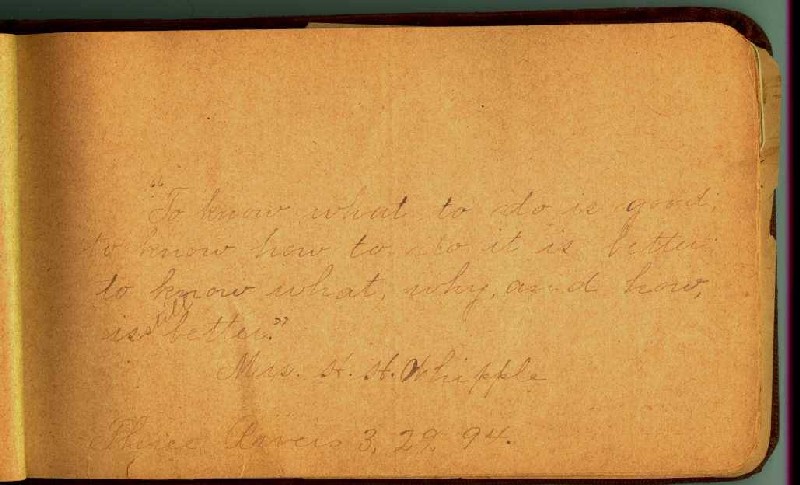 "To know what to do is good;
to know how to do it is better;
to know what, why, and how,
is still better."
Mrs. H. H. Whipple
Three Rivers 3, 29, 94.